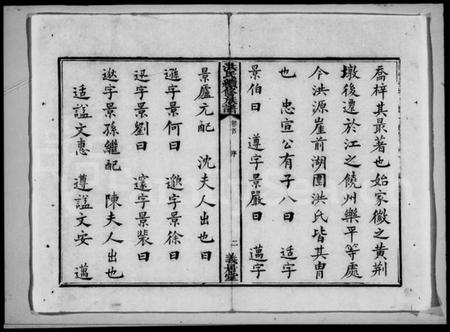 喬梓其最著也始家徽之黄荆
墩後遷於江之饒州樂平等處
今洪源崖前湖圍洪氏皆其胄
也 忠宣公有子八曰 适字
景伯曰 遵字景嚴曰 邁字
洪氏續修族譜
卷首 序
二 義植堂
景廬元配 沈夫人出也曰
遜字景何曰 邀字景徐曰
迅字景劉曰 邃字景裴曰
逖字景孫繼配 陳夫人出也
适諡文惠 遵諡文安 邁